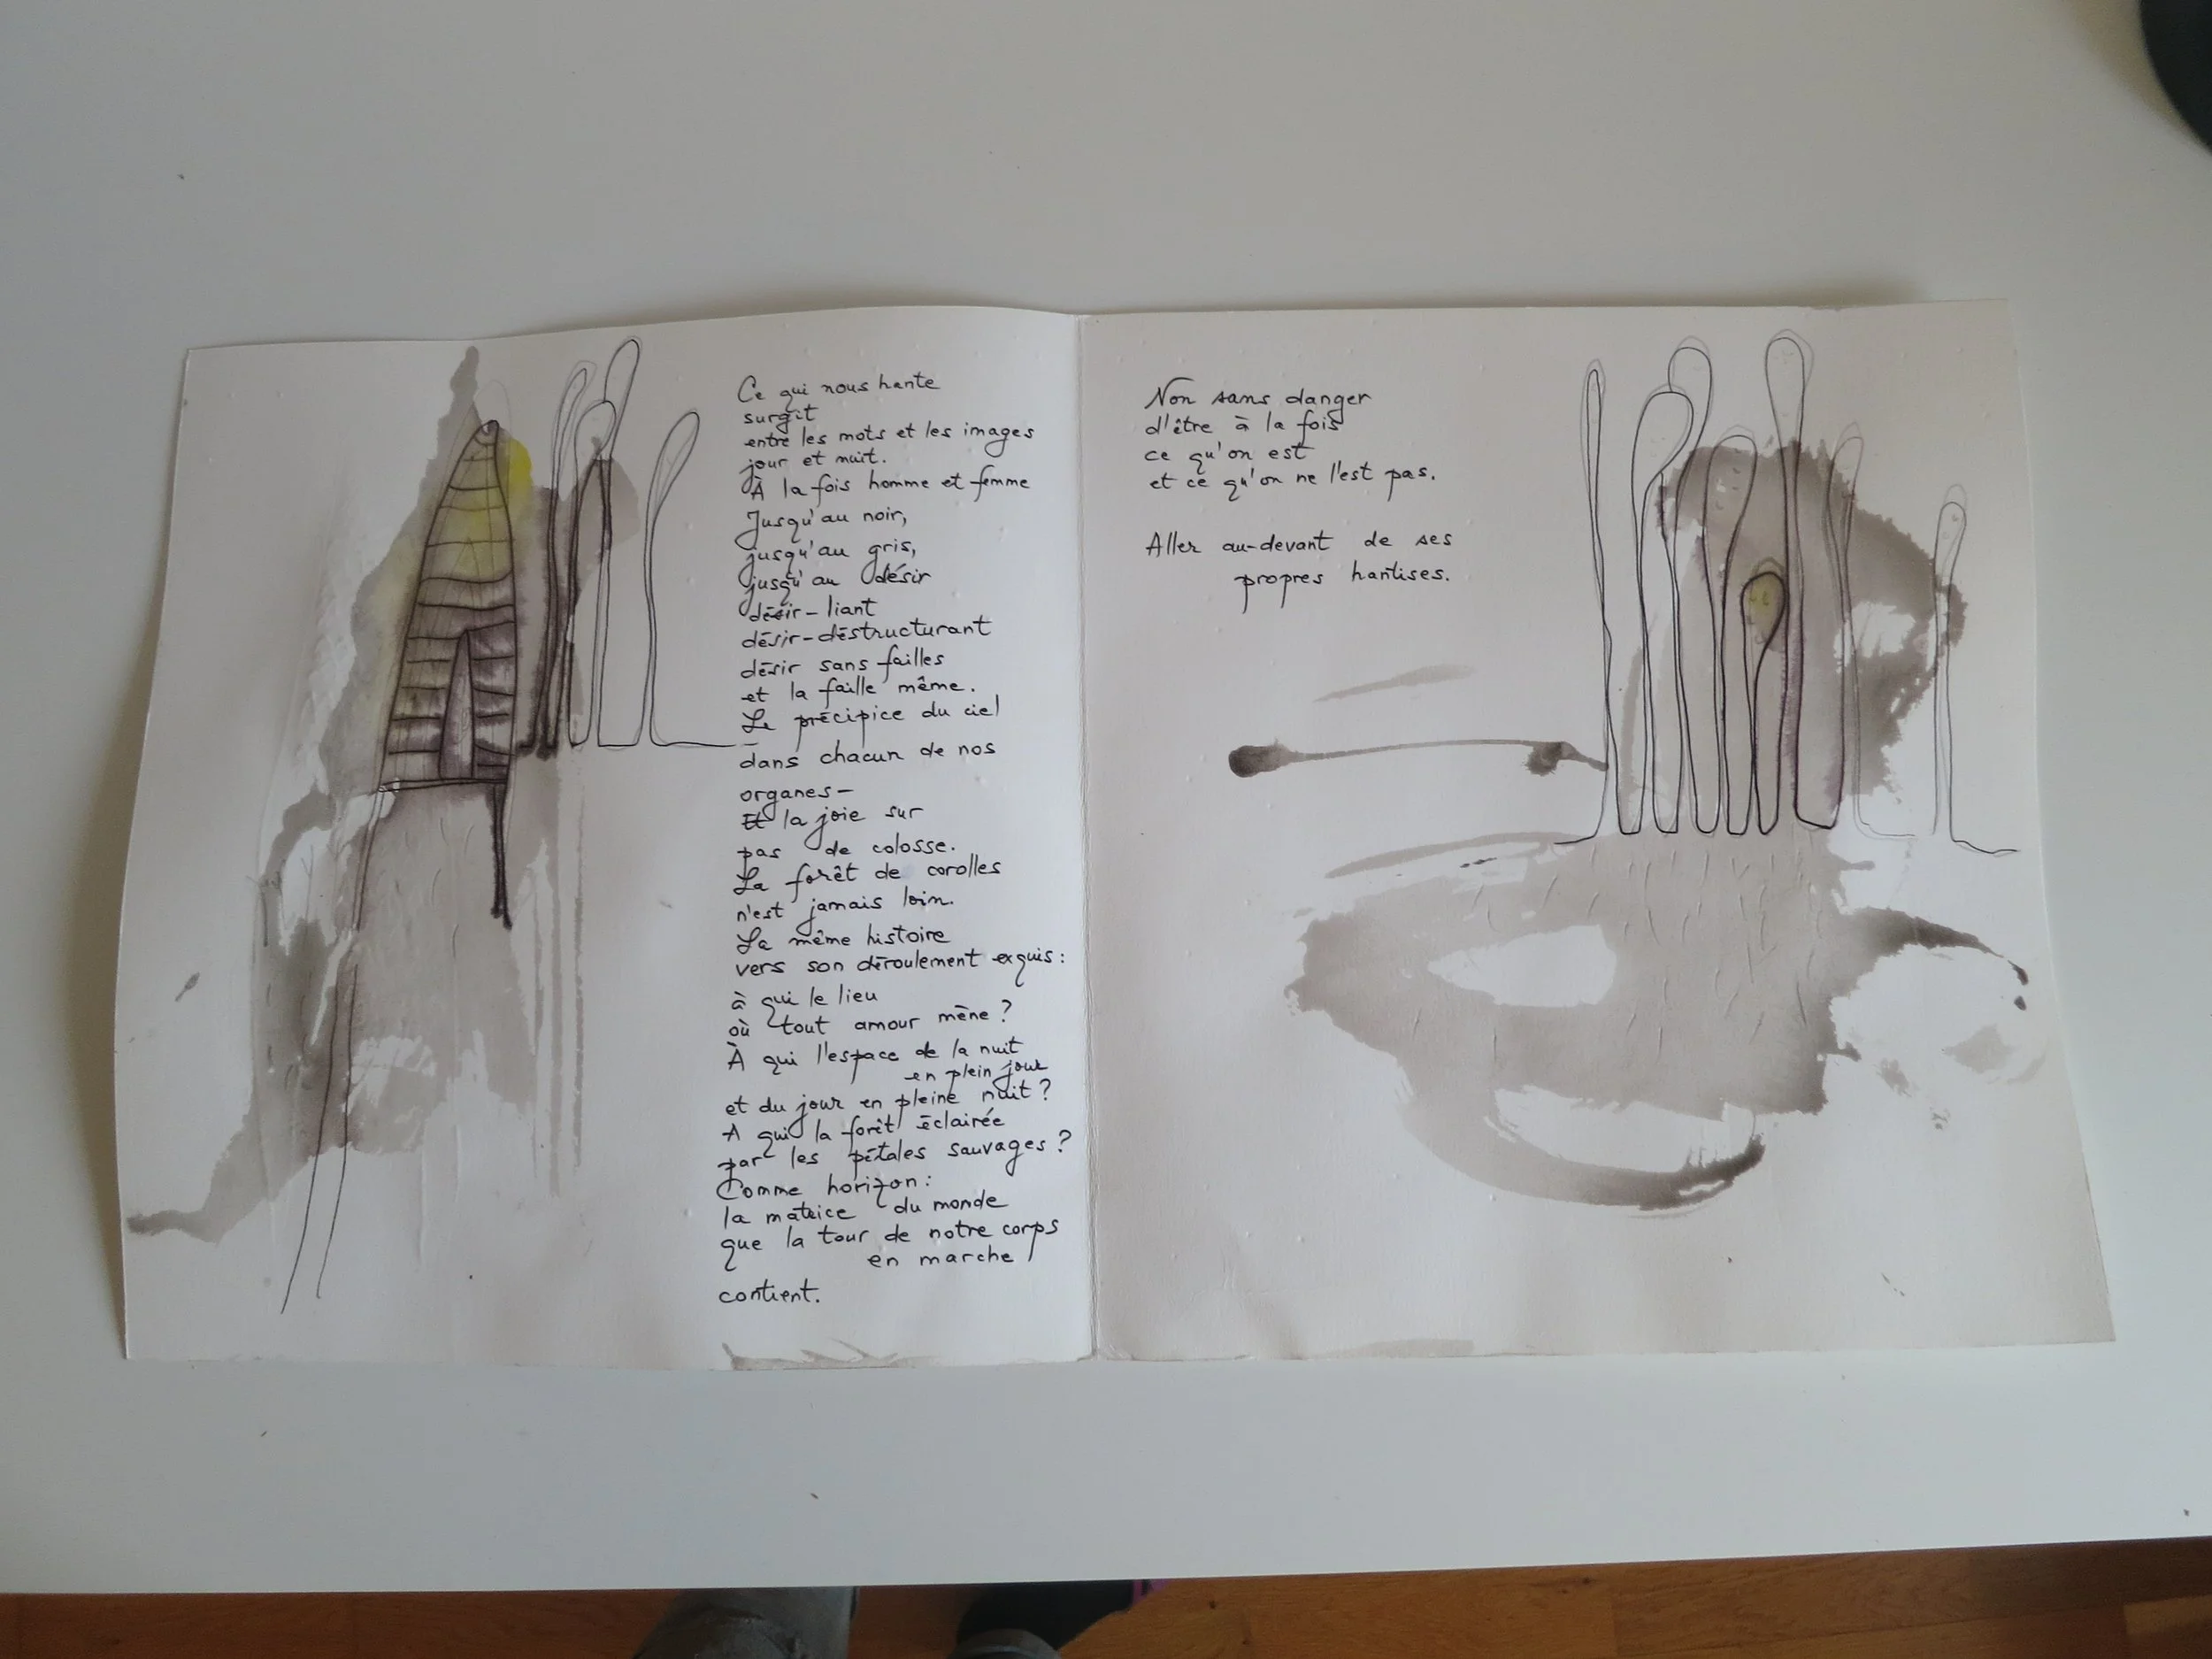 Ce qui nous hante
surgit
entre les mots et les images
jour et nuit.
À la fois homme et femme
Jusqu'au noir,
jusqu'au gris,
jusqu'au désir
désir-liant
désir-déstructurant
désir sans failles
et la faille même.
Le précipice du ciel
dans chacun de nos
organes—
Et la joie sur
pas de colosse.
La forêt de corolles
n'est jamais loin.
La même histoire
vers son déroulement exquis :
à qui le lieu
où tout amour mène ?
À qui l'espace de la nuit
en plein jour
et du jour en pleine nuit ?
A qui la forêt éclairée
par les pétales sauvages ?
Comme horizon :
la matrice du monde
que la tour de notre corps
en marche
contient.
Non sans danger
d'être à la fois
ce qu'on est
et ce qu'on ne l'est pas.
Aller au-devant de ses
propres hantises.